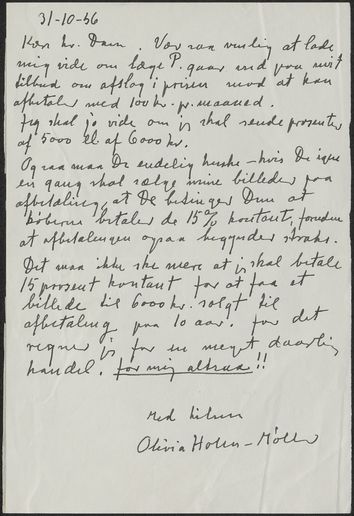 31-10-56
Kære hr. Dam. Vær saa venlig at lade
mig vide om læge P. gaar ind paa mit
tilbud om afslag i prisen mod at han
afbetaler med 100 kr. pr. maaned.
Jeg skal jo vide om jeg skal sende prosenter
af 5000 el af 6000 kr.
Og saa maa De endelig huske – hvis De igen
en gang skal sælge mine billeder paa
afbetaling, at De betinger Dem at
køberne betaler de 15% kontant, foruden
at afbetalingen ogsaa begynder straks.
Det maa ikke ske mere at jeg skal betale
15 prosent kontant for at faa et
billede til 6000 kr. solgt til
afbetaling paa 10 aar. for det
regner jeg for en meget daarlig
handel. for mig altsaa!!
Med hilsen
Olivia Holm-Møller